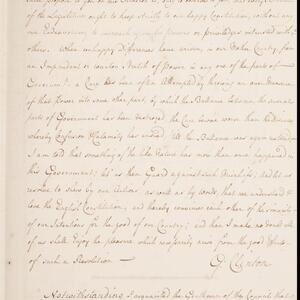 of the Legislature ought to keep strictly to our happy Constitution, without any
Endeavouring to encroach upon the Powers or priviledges intrusted with
others. When unhappy Differences have arisen, in our Mother Country, from
an Imprudent or zealous Stretch of Power in any one of the parts of
Government: a Cure has been often Attempted by throwing an over Measure
of that Power into some other part, by which the Ballance between the several
parts of Government has been destroyed the Cure become worse than the Disease
whereby Confusion & Calamity has ensued till the Ballance was again restored
I am told that something of the like Nature has more than once happened in
this Government; let us then Guard against such Mischiefs; and let us
resolve to shew by our Actions as well as by words, that we understand &
love the English Constitution, and thereby convince each other of the sincerity
of our Intentions for the good of our Country; and then I make no doubt all
of us shall Enjoy the pleasure which necessarily arises from the good Effects
of such a Resolution
G. Clinton
Notwithstanding I acquainted the Gentlemen of the Council that